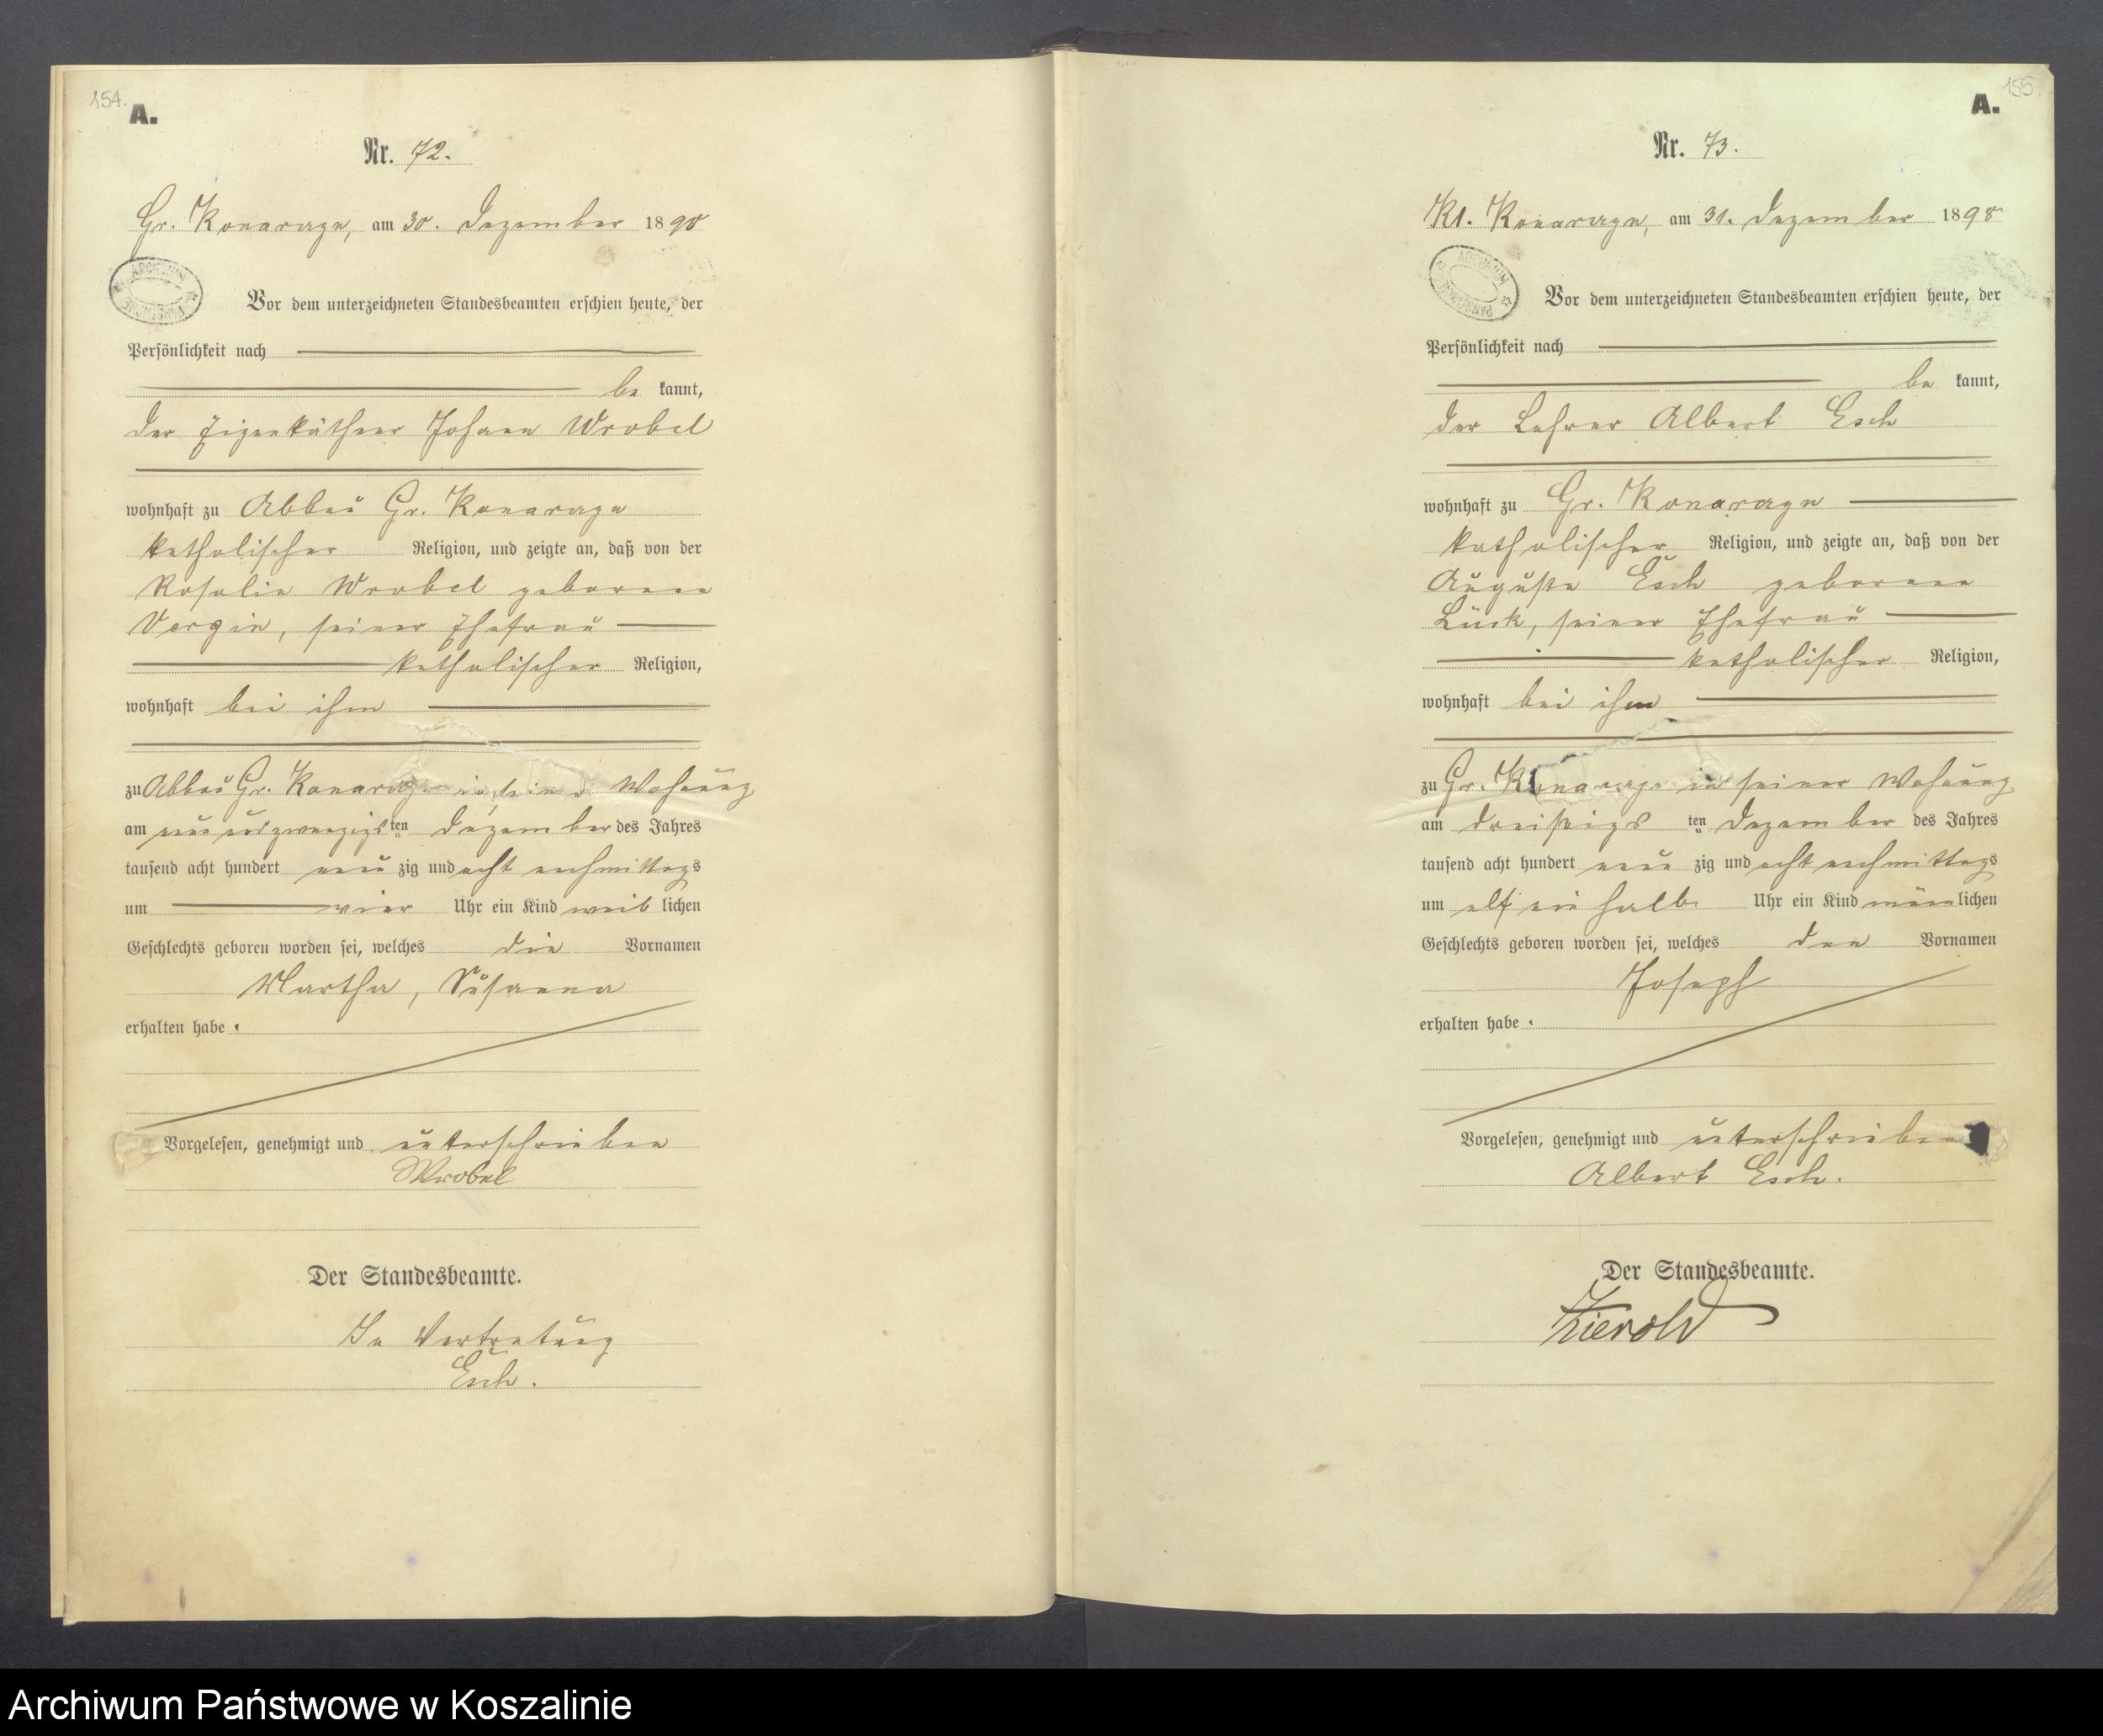 154.
A.
Nr. 72.
Gr. Konarczyn, am 30. Dezember 1898
ARCHIWUM
Vor dem unterzeichneten Standesbeamten erschien heute, der
Persönlichkeit nach
be kannt,
der Eigenkäthner Johann Wrobel
wohnhaft zu Abbau Gr. Konarczyn
katholischer Religion, und zeigte an, daß von der
Rosalie Wrobel geborenen
Vergin, seiner Ehefrau
katholischer Religion,
wohnhaft bei ihm
zu Abbau Gr. Konarczyn in seiner Wohnung
am neunundzwanzigsten Dezember des Jahres
tausend acht hundert neun zig und acht nachmittags
um vier Uhr ein Kind weib lichen
Geschlechts geboren worden sei, welches die Vornamen
Martha, Susanna
erhalten habe.
Vorgelesen, genehmigt und unterschrieben
Wrobel
Der Standesbeamte.
In Vertretung
Esch.
155
A.
Nr. 73.
Kl. Konarczyn, am 31. Dezember 1898
ARCHIWUM
Vor dem unterzeichneten Standesbeamten erschien heute, der
Persönlichkeit nach
be kannt,
der Lehrer Albert Esch
wohnhaft zu Gr. Konarczyn
katholischer Religion, und zeigte an, daß von der
Auguste Esch geborenen
Lück, seiner Ehefrau
katholischer Religion,
wohnhaft bei ihm
zu Gr. Konarczyn in seiner Wohnung
am dreißigsten Dezember des Jahres
tausend acht hundert neun zig und acht nachmittags
um elf ein halb Uhr ein Kind männlichen
Geschlechts geboren worden sei, welches den Vornamen
Joseph
erhalten habe.
Vorgelesen, genehmigt und unterschrieben
Albert Esch.
Der Standesbeamte.
Archiwum Państwowe w Koszalinie